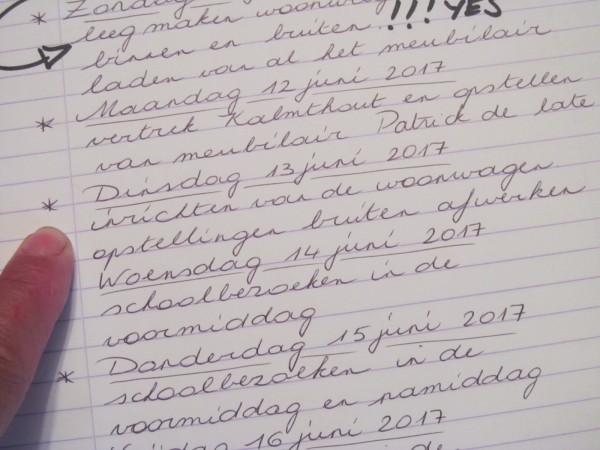 * Zondag
leeg maken woonwag
binnen en buiten !!! YES
laden van al het meubilair
* Maandag 12 juni 2017
vertrek Kalmthout en opstellen
van meubilair Patrick de late
* Dinsdag 13 juni 2017
inrichten van de woonwagen
opstellingen buiten afwerken
Woensdag 14 juni 2017
schoolbezoeken in de
voormiddag
* Donderdag 15 juni 2017
schoolbezoeken in de
voormiddag en namiddag
16 juni 2017
de